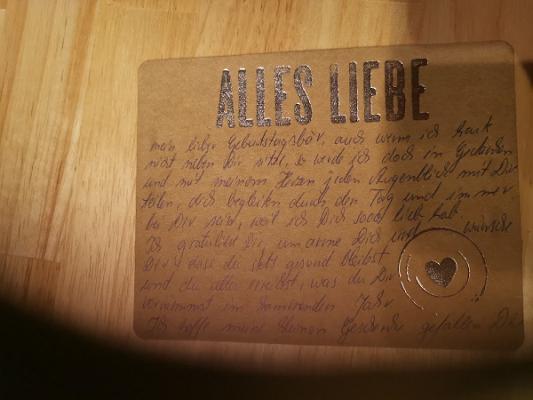 ALLES LIEBE
mein lieber Geburtstagsbär, auch wenn ich heut
nicht neben Dir sitze, so werde ich doch in Gedanken
und mit meinem Herzen jeden Augenblick mit Dir
teilen, dich begleiten durch den Tag und immer
bei Dir sein, weil ich Dich sooo lieb hab
Ich gratuliere Dir, umarme Dich und wünsche
Dir, dass du stets gesund bleibst
und du alles, was du Dir
vornimmst im kommenden Jahr
Ich hoffe meine kleinen Geschenke gefallen Dir